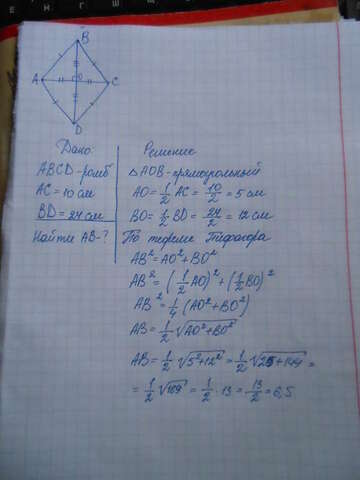 B
A O C
D
Дано:
ABCD-ромб
AC = 10 см
BD = 24 см
Найти AB-?
Решение
△AOB-прямоугольный
AO = 1/2 AC = 10/2 = 5 см
BO = 1/2 BD = 24/2 = 12 см
По теореме Пифагора
AB² = AO² + BO²
AB² = (1/2 AO)² + (1/2 BO)²
AB² = 1/4 (AO² + BO²)
AB = 1/2 √(AO² + BO²)
AB = 1/2 · √(5² + 12²) = 1/2 · √(25 + 144) =
= 1/2 √169 = 1/2 · 13 = 13/2 = 6,5